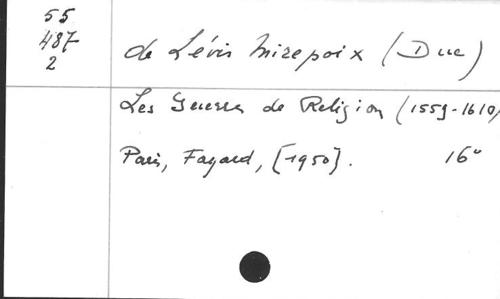 55
487
2
de Lévis Mirepoix (Duc)
Les Guerres de Religion (1559-1610)
Paris, Fayard, [1950]. 16°